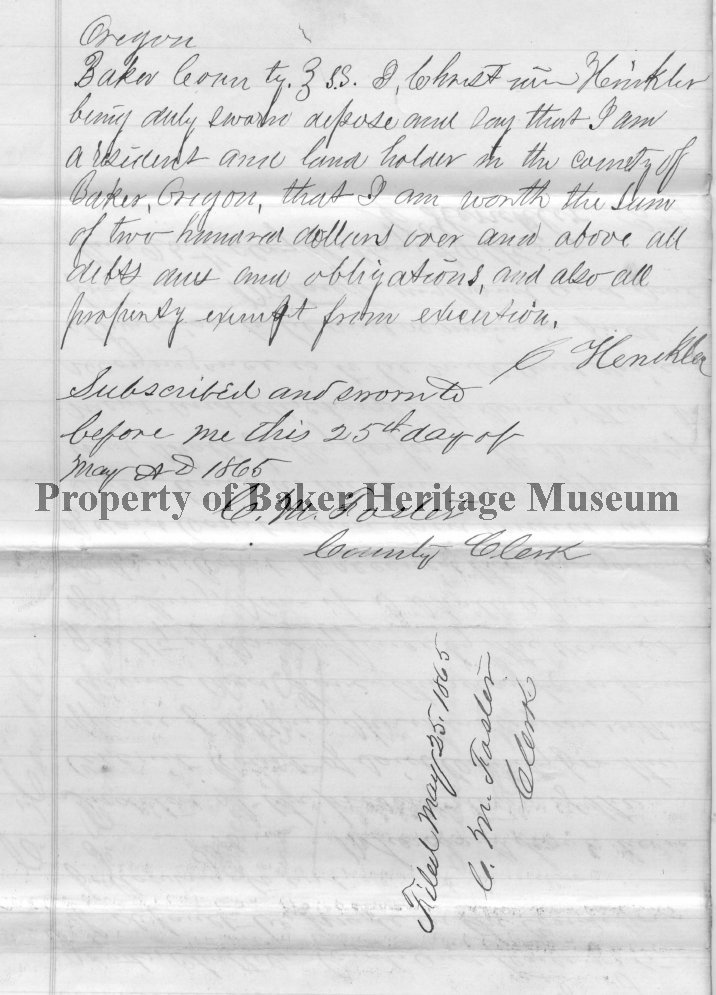 Oregon
Baker County. } SS. I, Christian Hinkler
being duly sworn depose and say that I am
a resident and land holder in the county of
Baker, Oregon, that I am worth the sum
of two hundred dollars over and above all
debts dues and obligations, and also all
property exempt from execution.
C Henckler
Subscribed and sworn to
before me this 25th day of
May AD 1865
Property of Baker Heritage Museum
C. M. Foster
County Clerk
Filed May 25, 1865
C. M. Foster
Clerk